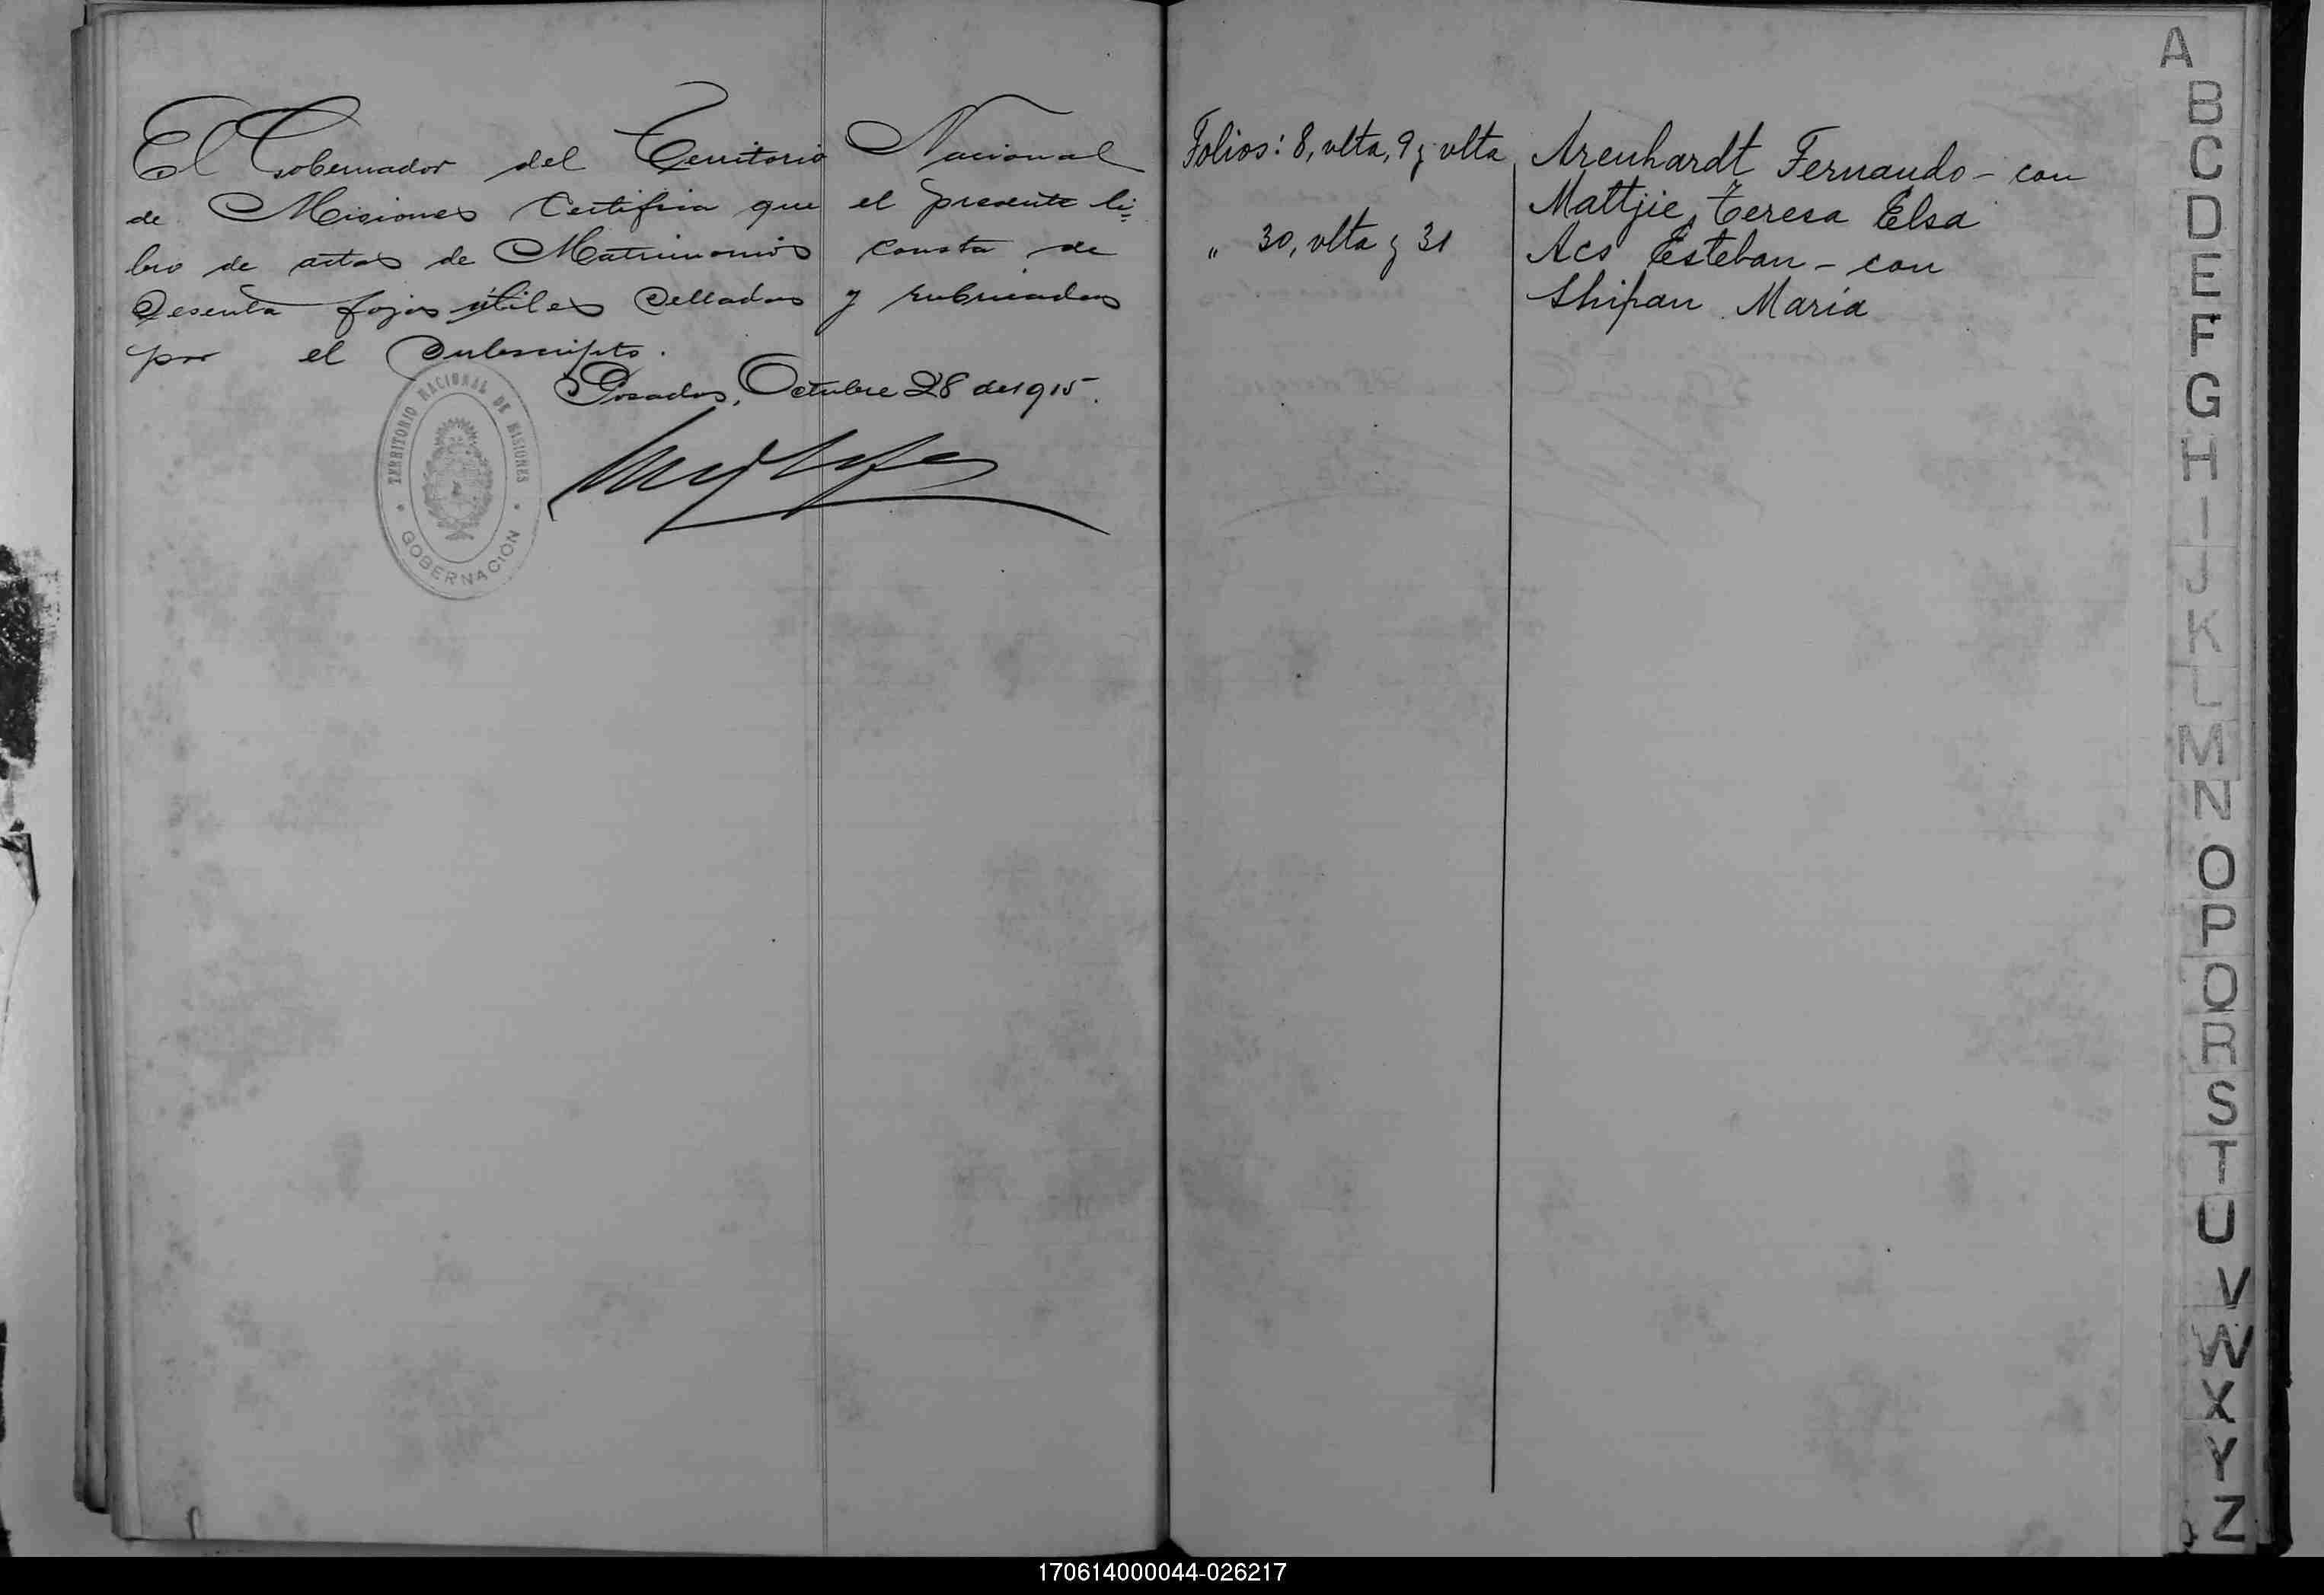 El Gobernador del Territorio Nacional
de Misiones Certifica que el presente li=
bro de actas de Matrimonios consta de
Sesenta fojas útiles Selladas y rubricadas
por el Subscripto.
Posadas, Octubre 28 de 1915.
TERRITORIO NACIONAL DE MISIONES
GOBERNACION
Folios: 8, vlta, 9 y vlta Arenhardt Fernando - con
Mattjie, Teresa Elsa
" 30, vlta y 31 Acs Esteban - con
Shipan Maria
A
B
C
D
E
F
G
H
I
J
K
L
M
N
O
P
Q
R
S
T
U
V
W
X
Y
Z
170614000044-026217